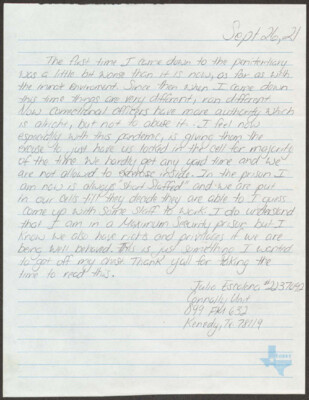 Sept. 26, 21
The first time I came down to the penitentiary
was a little bit worse than it is now, as far as with
the inmate enviroment. Since then when I came down
this time things are very different, ran different.
Now correctional officers have more authority which
is alright, but not to abuse it. I feel now
especially with this pandemic, is giving them the
excuse to just have us locked in the cell for majority
of the time. We hardly get any yard time and we
are not allowed to exercise inside. In the prison I
am now is always "Short Staffed" and we are put
in our cells till they decide they are able to I guess
come up with some staff to work. I do understand
that I am in a Maximum Security prison, but I
know we also have rights and privileges if we are
being well behaved. This is just something I wanted
to get off my chest. Thank y'all for taking the
time to read this.
Julio
Connally Unit
899 FM 632
Kenedy, Tx 78119